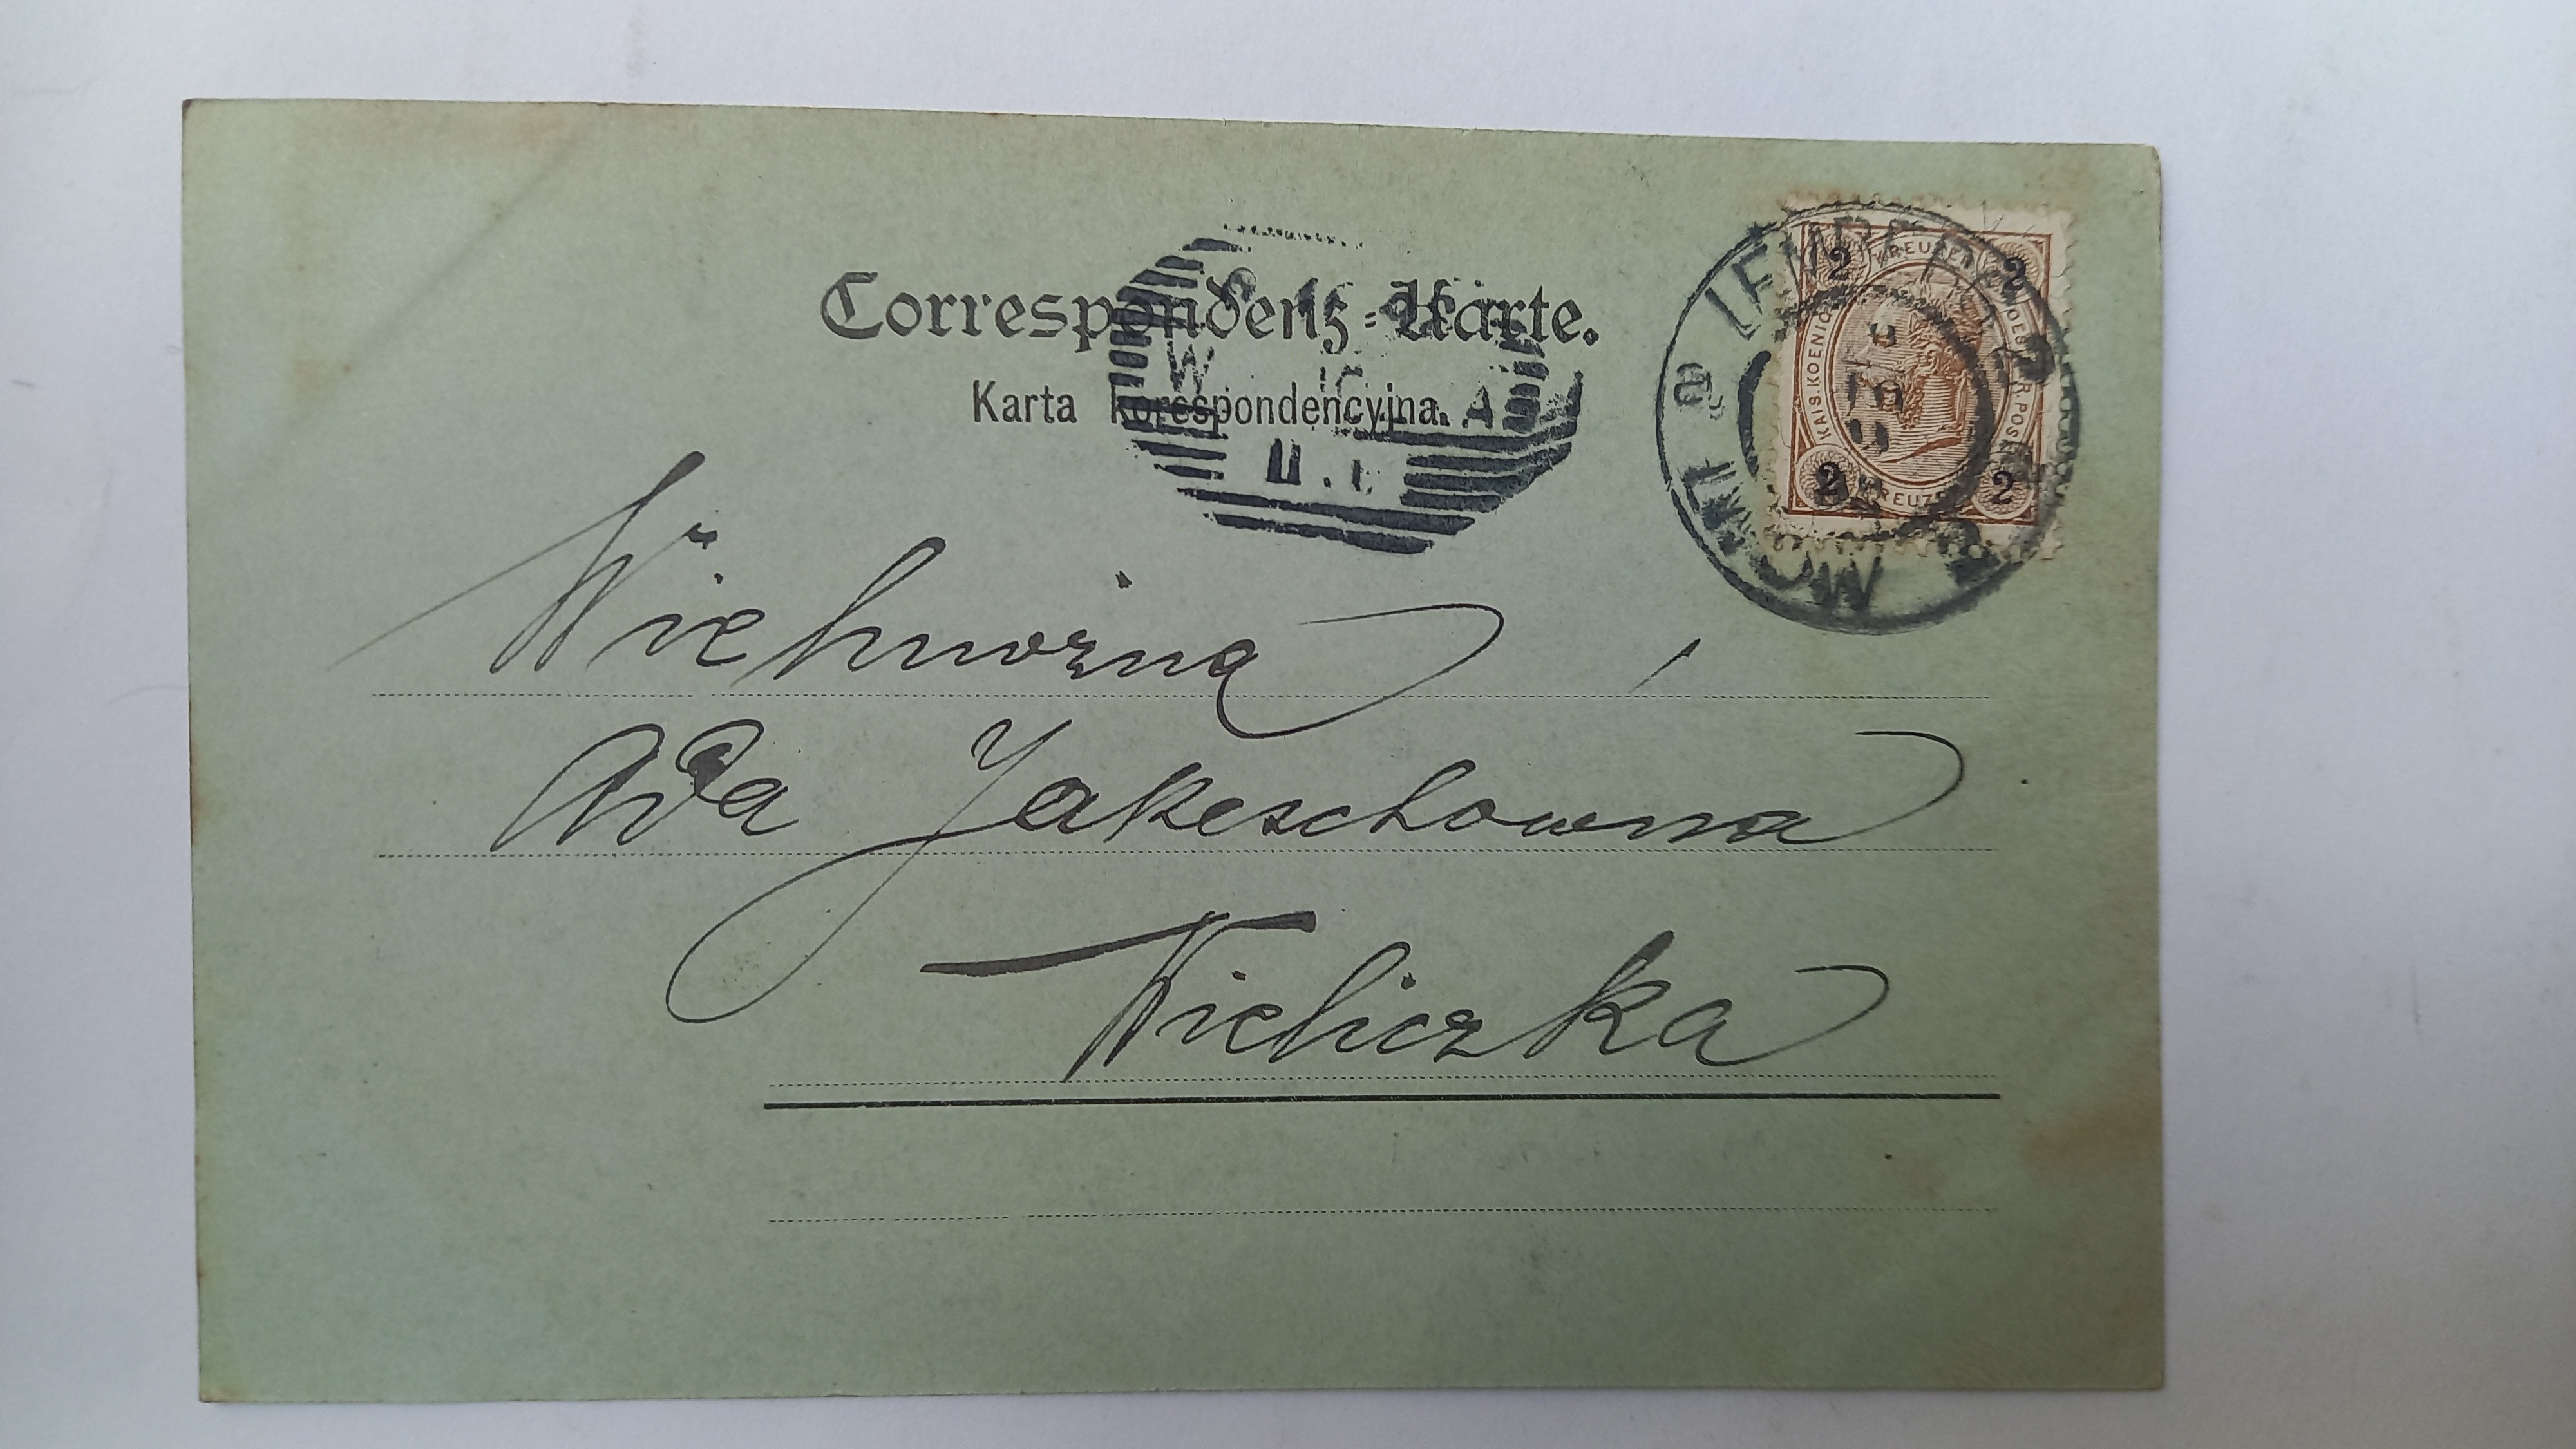 Correspondenz-Karte.
Karta korespondencyjna.
2 KREUZER 2
KAIS. KOENIGL. OESTERR. POST
2 KREUZER 2
LEMBERG
W
II.
Wielmożna
Ada Jakeschowna
Wieliczka